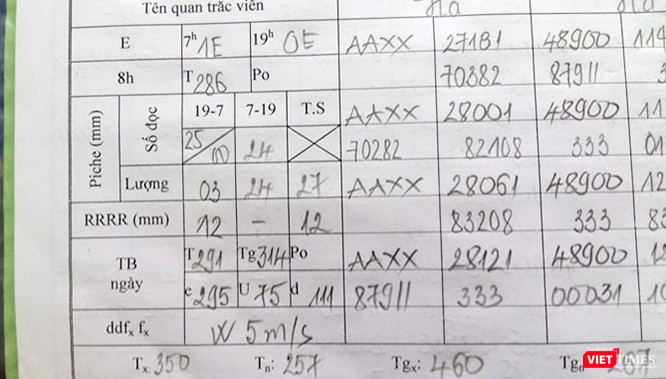 Tên quan trắc viên
E 7h 1E 19h 0E AAXX 27181 48900
8h T 286 Po 70382 87911
Piche (mm) Số đọc 19-7 7-19 T.S AAXX 28001 48900
25/00 24 70282 82108 333
Lượng 03 24 27 AAXX 28061 48900
RRRR (mm) 12 - 12 83208 333
TB ngày T 291 Tg 314 Po AAXX 28121 48900
e 295 U 75 d 111 87911 333 00031
ddfx fx W 5m/s
Tx: 350 Tn: 257 Tgx: 460 Tgn
VIETTIMES